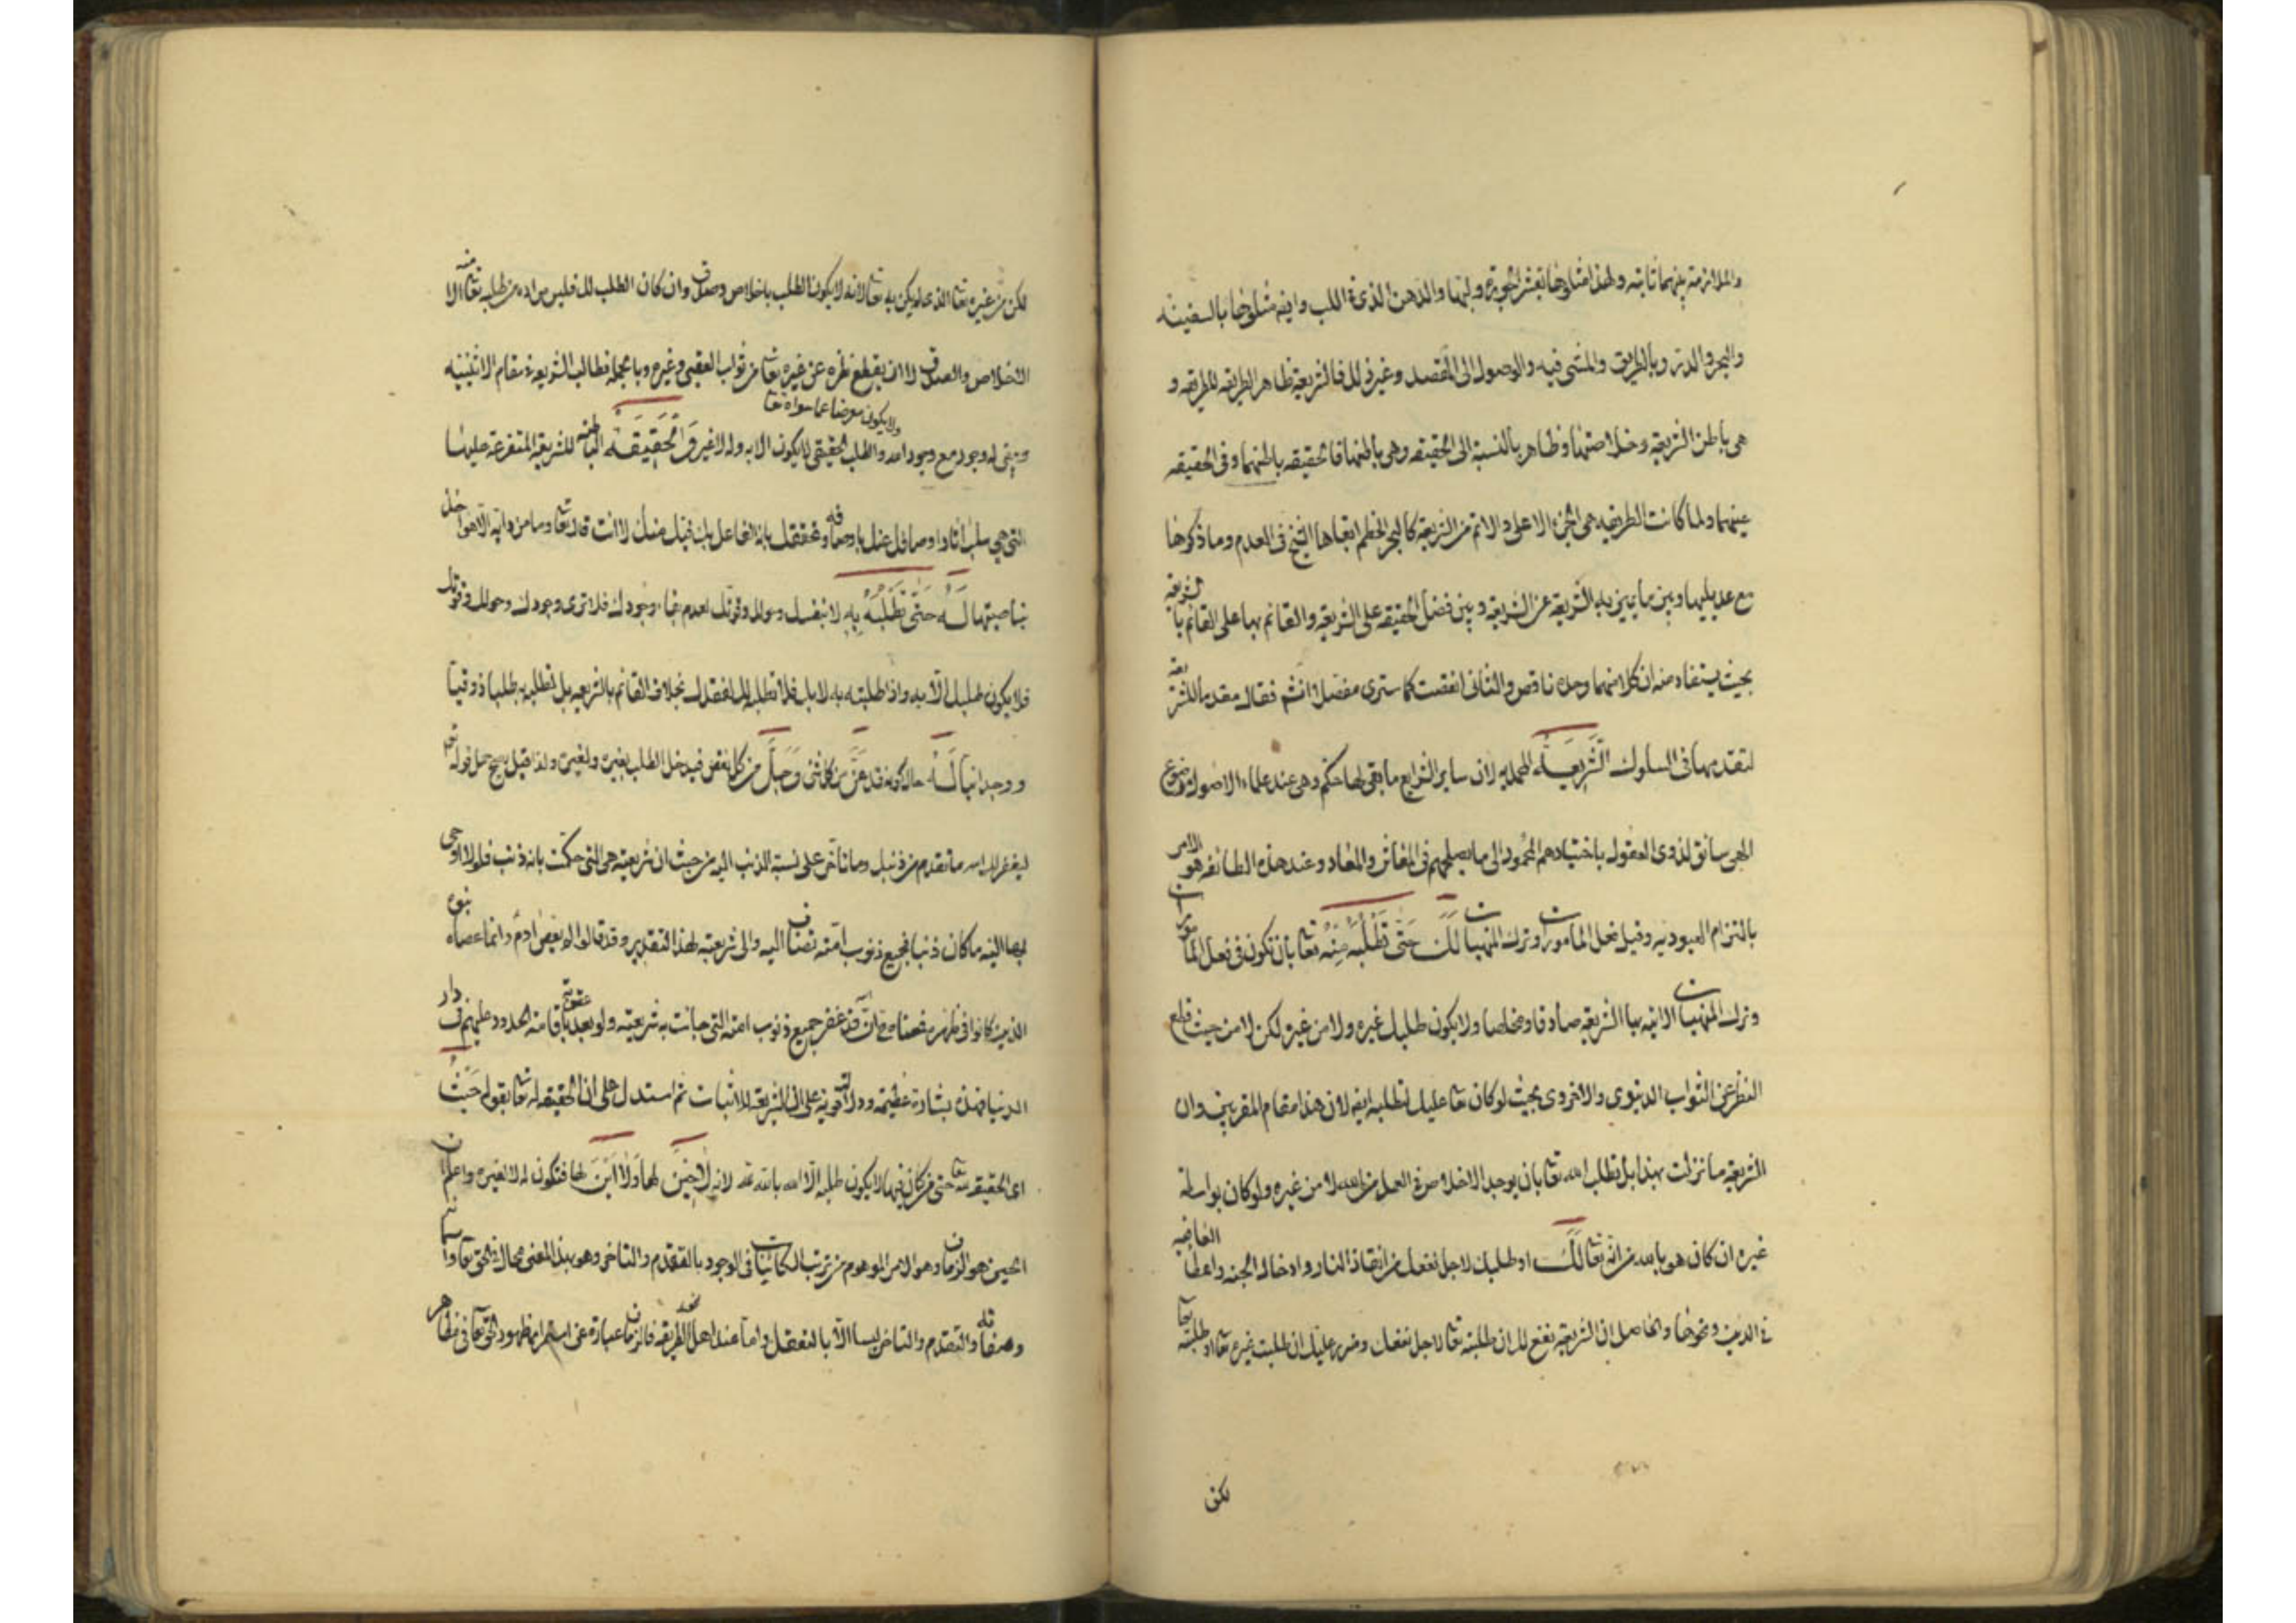 والملازمة بينهما ثابته ولهذا مثلوها بقشر الجوزة ولبها والدهن الذى فى اللب وايضا مثلوها بالسفينه
والبحر والدر وبالطريق والمشى فيه والوصول الى المقصد وغير ذلك فالشريعة ظاهر الطريقه للطريقه و
هى باطن الشريعة وخلاصتها وظاهر بالنسبة الى الحقيقه وهى باطنها فالحقيقه باطنهما وفى الحقيقه
عينهما ولما كانت الطريقه هى الجزء الاعلى والاتم من الشريعة كالبحر الخضم ابقاها الشيخ فى العدم وما ذكرها
مع عديليها وبين ما يميز به الشريعة عن الشريعة وبين فضل الحقيقه على الشريعة والقائم بها على القائم بالشريعة
بحيث يستفاد منه ان كلا منهما وحده ناقص والثانى انقص كما سترى مفصلا انشم فقال مقدما للشريعة
لتقدمها فى السلوك الشَّرِيعَةُ المحمديه لان ساير الشرايع ما بقى لها حكم وهى عند علماء الاصول وضع
الهى سائق لذوى العقول باختيارهم المحمود الى ما يصلحهم فى المعاش والمعاد وعند هذه الطائفه هو الامر
بالتزام العبوديه وقيل فعل المامورات وترك المنهيات لَكَ حَتَّى تَطْلُبَهُ مِنْهُ تعا بان تكون فى فعل المامورات
وترك المنهيات الاتيه بها الشريعة صادقا ومخلصا ولا يكون طلبك غيره ولا من غيره لكن لا من حيث قطع
النظر عن الثواب الدنيوى والاخروى بحيث لو كان تعا عليك لطلبه ايضا لان هذا مقام المقربين وان
الشريعة ما نزلت بهذا بل تطلب الله تعا بان يوجد الاخلاص فى العمل من الله لا من غيره ولو كان بواسطة
غيره ان كان هو بالله من انه تعا لَكَ او طلبك لاجل نفعك من انقاذ النار وادخال الجنه واعطا العافيه
فى الدين ونحوها والحاصل ان الشريعة نفع لك ان طلبته تعا لاجل نفعك وضر عليك ان طلبت غيره تعا او طلبته تعا
لكن
لكن من غيره تعا الذى لم يكن به تعا لانه لا يكون الطلب باخلاص وصدق وان كان الطلب لك فليس مراده من طلبه تعا منه الا
الاخلاص والصدق لا ان يقطع نظره عن غيره تعا من ثواب العقبى وغيره وبالجملة فطالب الشريعة فى مقام الاثنينيه
ولا يكون معرضا عما سواه تعا
ويبقى له وجود مع وجود الله والطلب الحقيقى لا يكون الا به وله لا غير وَالْحَقِيقَةُ الباطنه للشريعة المتفرعة عليها
التى هى سلب اثار اوصافك عنك باوصافه وتحققك بانه الفاعل بك فيك منك لا انت قال تعا وما من دابه الا هو اخذ
بناصيتها لَهُ حَتَّى تَطْلُبَهُ بِهِ لا بنفسك وحولك وقوتك لعدم بقاء وجودك فلا ترى وجودك وحولك وقوتك
فلا يكون طلبك الا به واذا طلبته به لا بك فلا تطلبه لك لفقدك بخلاف القائم بالشريعة بل تطلبه به طلبا ذوقيا
ووجدانيا لَهُ حال كونه قد عَزَّ من كل شئ وَجَلَّ من كل نقص فيدخل الطلب بغيره ولغيره ولذا قيل يصح حمل قوله تعم
ليغفر لك الله ما تقدم من ذنبك وما تأخر على نسبة الذنب اليه من حيث ان شريعته هى التى حكمت بانه ذنب فلولا اوحى
بها اليه ما كان ذنبا فجميع ذنوب امته تضاف اليه والى شريعته لهذا التقدير وقد قالوا لم يعص ادم وانما عصاه بنوه
الذين كانوا فى ظهره فمعناه ان الله قد غفر جميع ذنوب امته التى جائت به شريعته ولو بعد عقوبة باقامة الحدود عليهم فى دار
الدنيا فهذه بشارة عظيمة ودلالة قوية على ان الشريعة للاثبات ثم استدل على ان الحقيقه له تعا بقوله حَيْثُ
اى الحقيقه لله تعا حتى من كان فيها لا يكون طلبه الا الله بالله لله لانه لَا حِينَ لها وَلَا اَيْنَ لها فتكون له لا لغيره واعلم ان
الحين هو الزمان وهو الامر الموهوم من ترتب الكائنات فى الوجود بالتقدم والتاخر وهو بهذا المعنى محال فى الحق تعا واسمائه
وصفاته والتقدم والتاخر ليسا الا بالتعقل واما عند اهل الطريقه فالزمان عبارة عن استمرار ظهور الحق تعا فى مظاهر